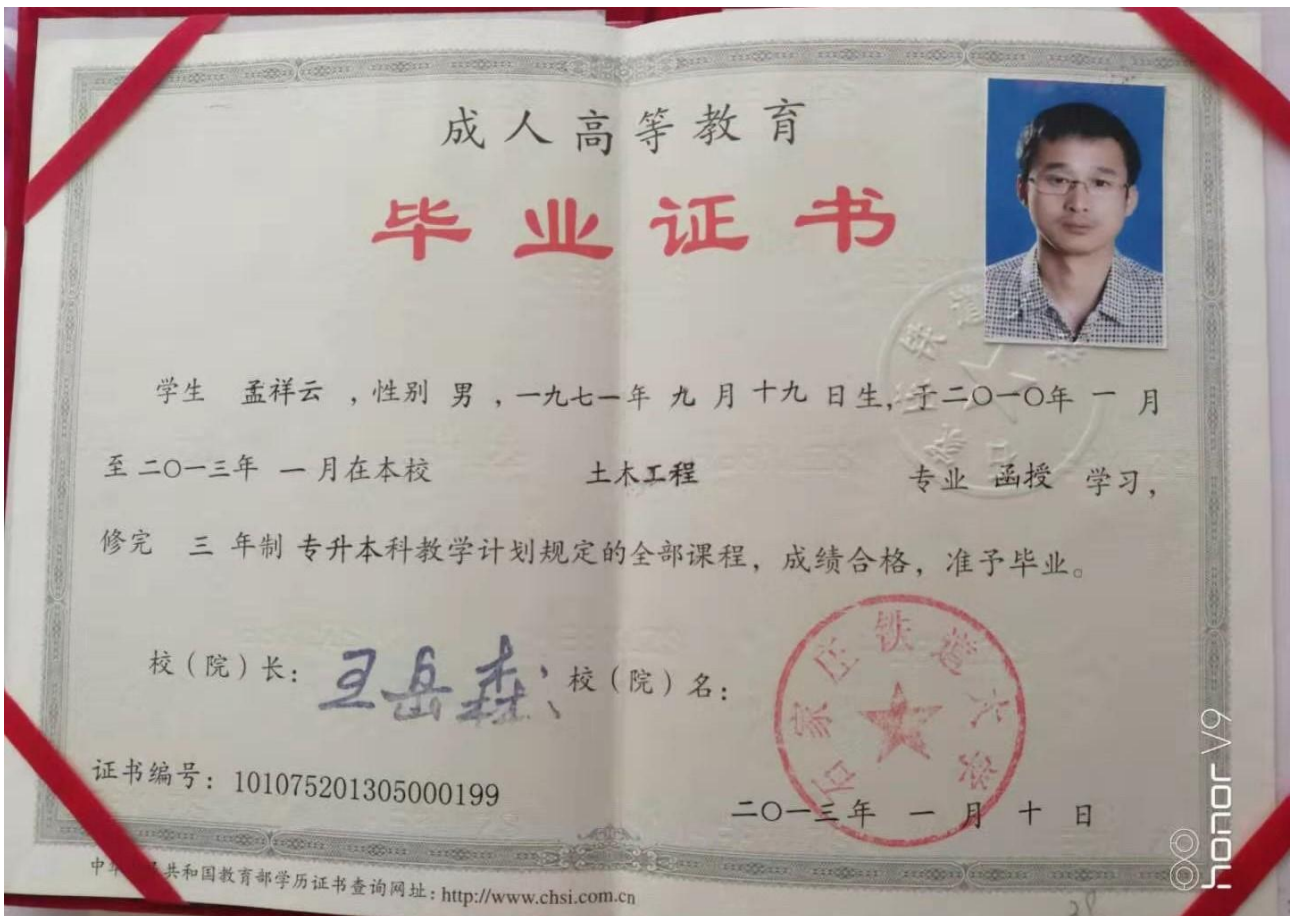 成人高等教育
毕业证书
学生 孟祥云 ，性别 男 ，一九七一年 九 月 十九 日生，于二〇一〇年 一 月
至 二〇一三年 一 月在本校 土木工程 专业 函授 学习，
修完 三 年制 专升本科教学计划规定的全部课程，成绩合格，准予毕业。
校（院）长：王岳森 校（院）名：
石家庄铁道大学
证书编号：101075201305000199
二〇一三年 一 月 十 日
中华人民共和国教育部学历证书查询网址：http://www.chsi.com.cn
honor V9